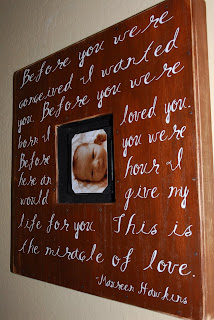 Before you were
conceived I wanted
you. Before you were
born I loved you.
Before you were
here an hour I
would give my
life for you. This is
the miracle of love.
-Maureen Hawkins